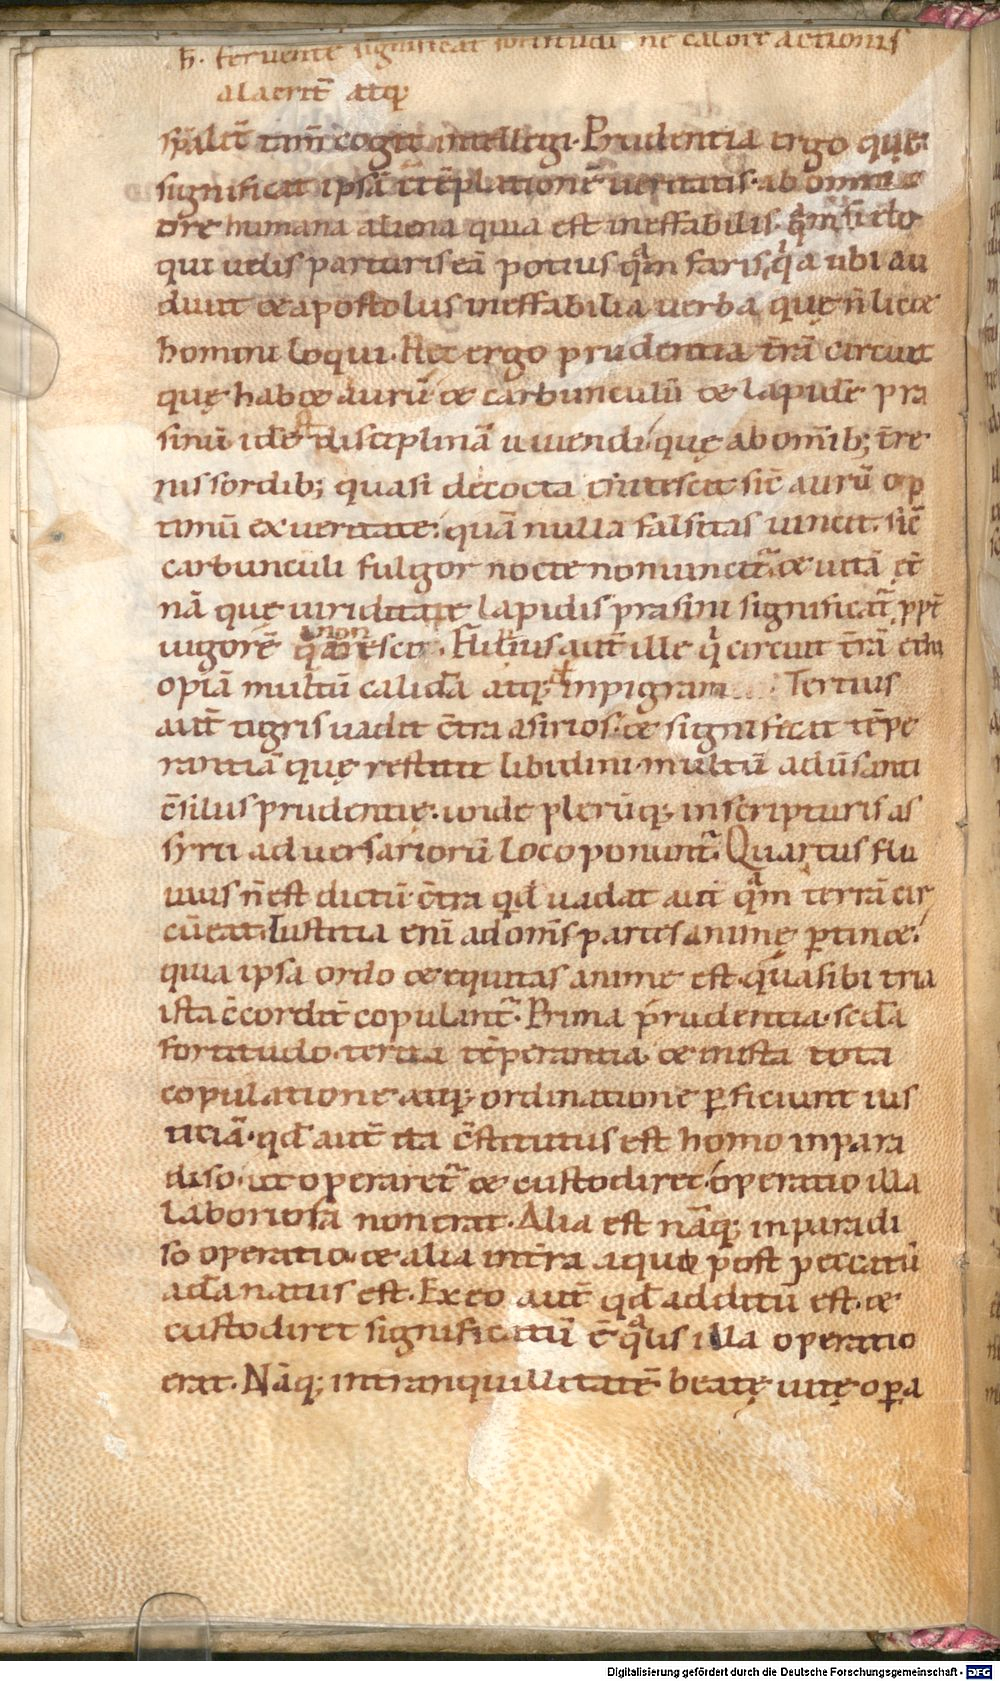 h̄. fervente significat fortitudinē calore actionis
alacrit̄ atq;
sp̄alit̄ tam̄ cogit intellegi. Prudentia ergo quę
significat ipsā c̄tēplationē veritatis. ab omni
ore humana aliena quia est ineffabilis. quā si elo
qui velis parturis eā potius quā faris, q̇a ibi au
diuit & apostolus ineffabilia verba quę n̄ lic&
homini loqui. Hęc ergo prudentia tr̄ā circuit
quę hab& aurū & carbunculū & lapidē pra
sinū id ē disciplinā vivendi, quę ab omīb; tr̄e
nis sordib; quasi decocta enitescit sic̄ aurū op
timū ex veritate; quā nulla falsitas vincit. sic̄
carbunculi fulgor nocte non vincit̄. & vitā et̄
nā quę viriditate lapidis prasini significat̄, ppt̄
vigorē q̇ non arescit. Fluvius aut̄ ille q̇ circuit tr̄ā ethi
opiā multū calidā atq; inpigram Tertius
aut̄ tigris vadit c̄tra asirios. & significat tēpe
rantiā quę restitit libidini. multū adv̄santi
c̄siliis prudentię. unde plerūq; in scripturis as
syrii adversariorū loco ponunt̄. Quartus flu
vius n̄ est dictū c̄tra qd̄ vadat aut quā terrā cir
cūeat. Iustitia enī ad om̄s partes animę ptin&.
quia ipsa ordo & equitas anime est. qua sibi tria
ista c̄cordit̄ copulant̄. Prima prudentia. secd̄a
fortitudo. tertia tēperantia. & in ista tota
copulatione atq; ordinatione pficiunt ius
ticiā. qd̄ aut̄ ita c̄stitutus est homo in para
diso. ut operaret̄ & custodiret. operatio illa
laboriosa non erat. Alia est nāq; in paradi
so operatio. & alia in tr̄ra a quo post peccatū
adā natus est. Ex eo aut̄ qd̄ additū est. &
custodiret significatū ē qualis illa operatio
erat. Nāq; in tranquillitatē beatę vitę opa
Digitalisierung gefördert durch die Deutsche Forschungsgemeinschaft - DFG